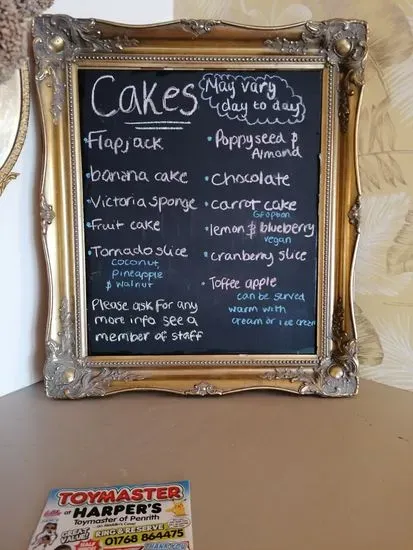 Cakes
May vary
day to day
Flapjack
banana cake
Victoria sponge
Fruit cake
Tornado slice
coconut
pineapple
& walnut
Please ask for any
more info see a
member of staff
Poppyseed &
Almond
Chocolate
carrot cake
GF option
lemon & blueberry
vegan
cranberry slice
Toffee apple
can be served
warm with
cream or ice cream
TOYMASTER
at HARPER'S
Toymaster of Penrith
GREAT
VALUE!
RING & RESERVE
01768 864475
HALF
THANK YOU